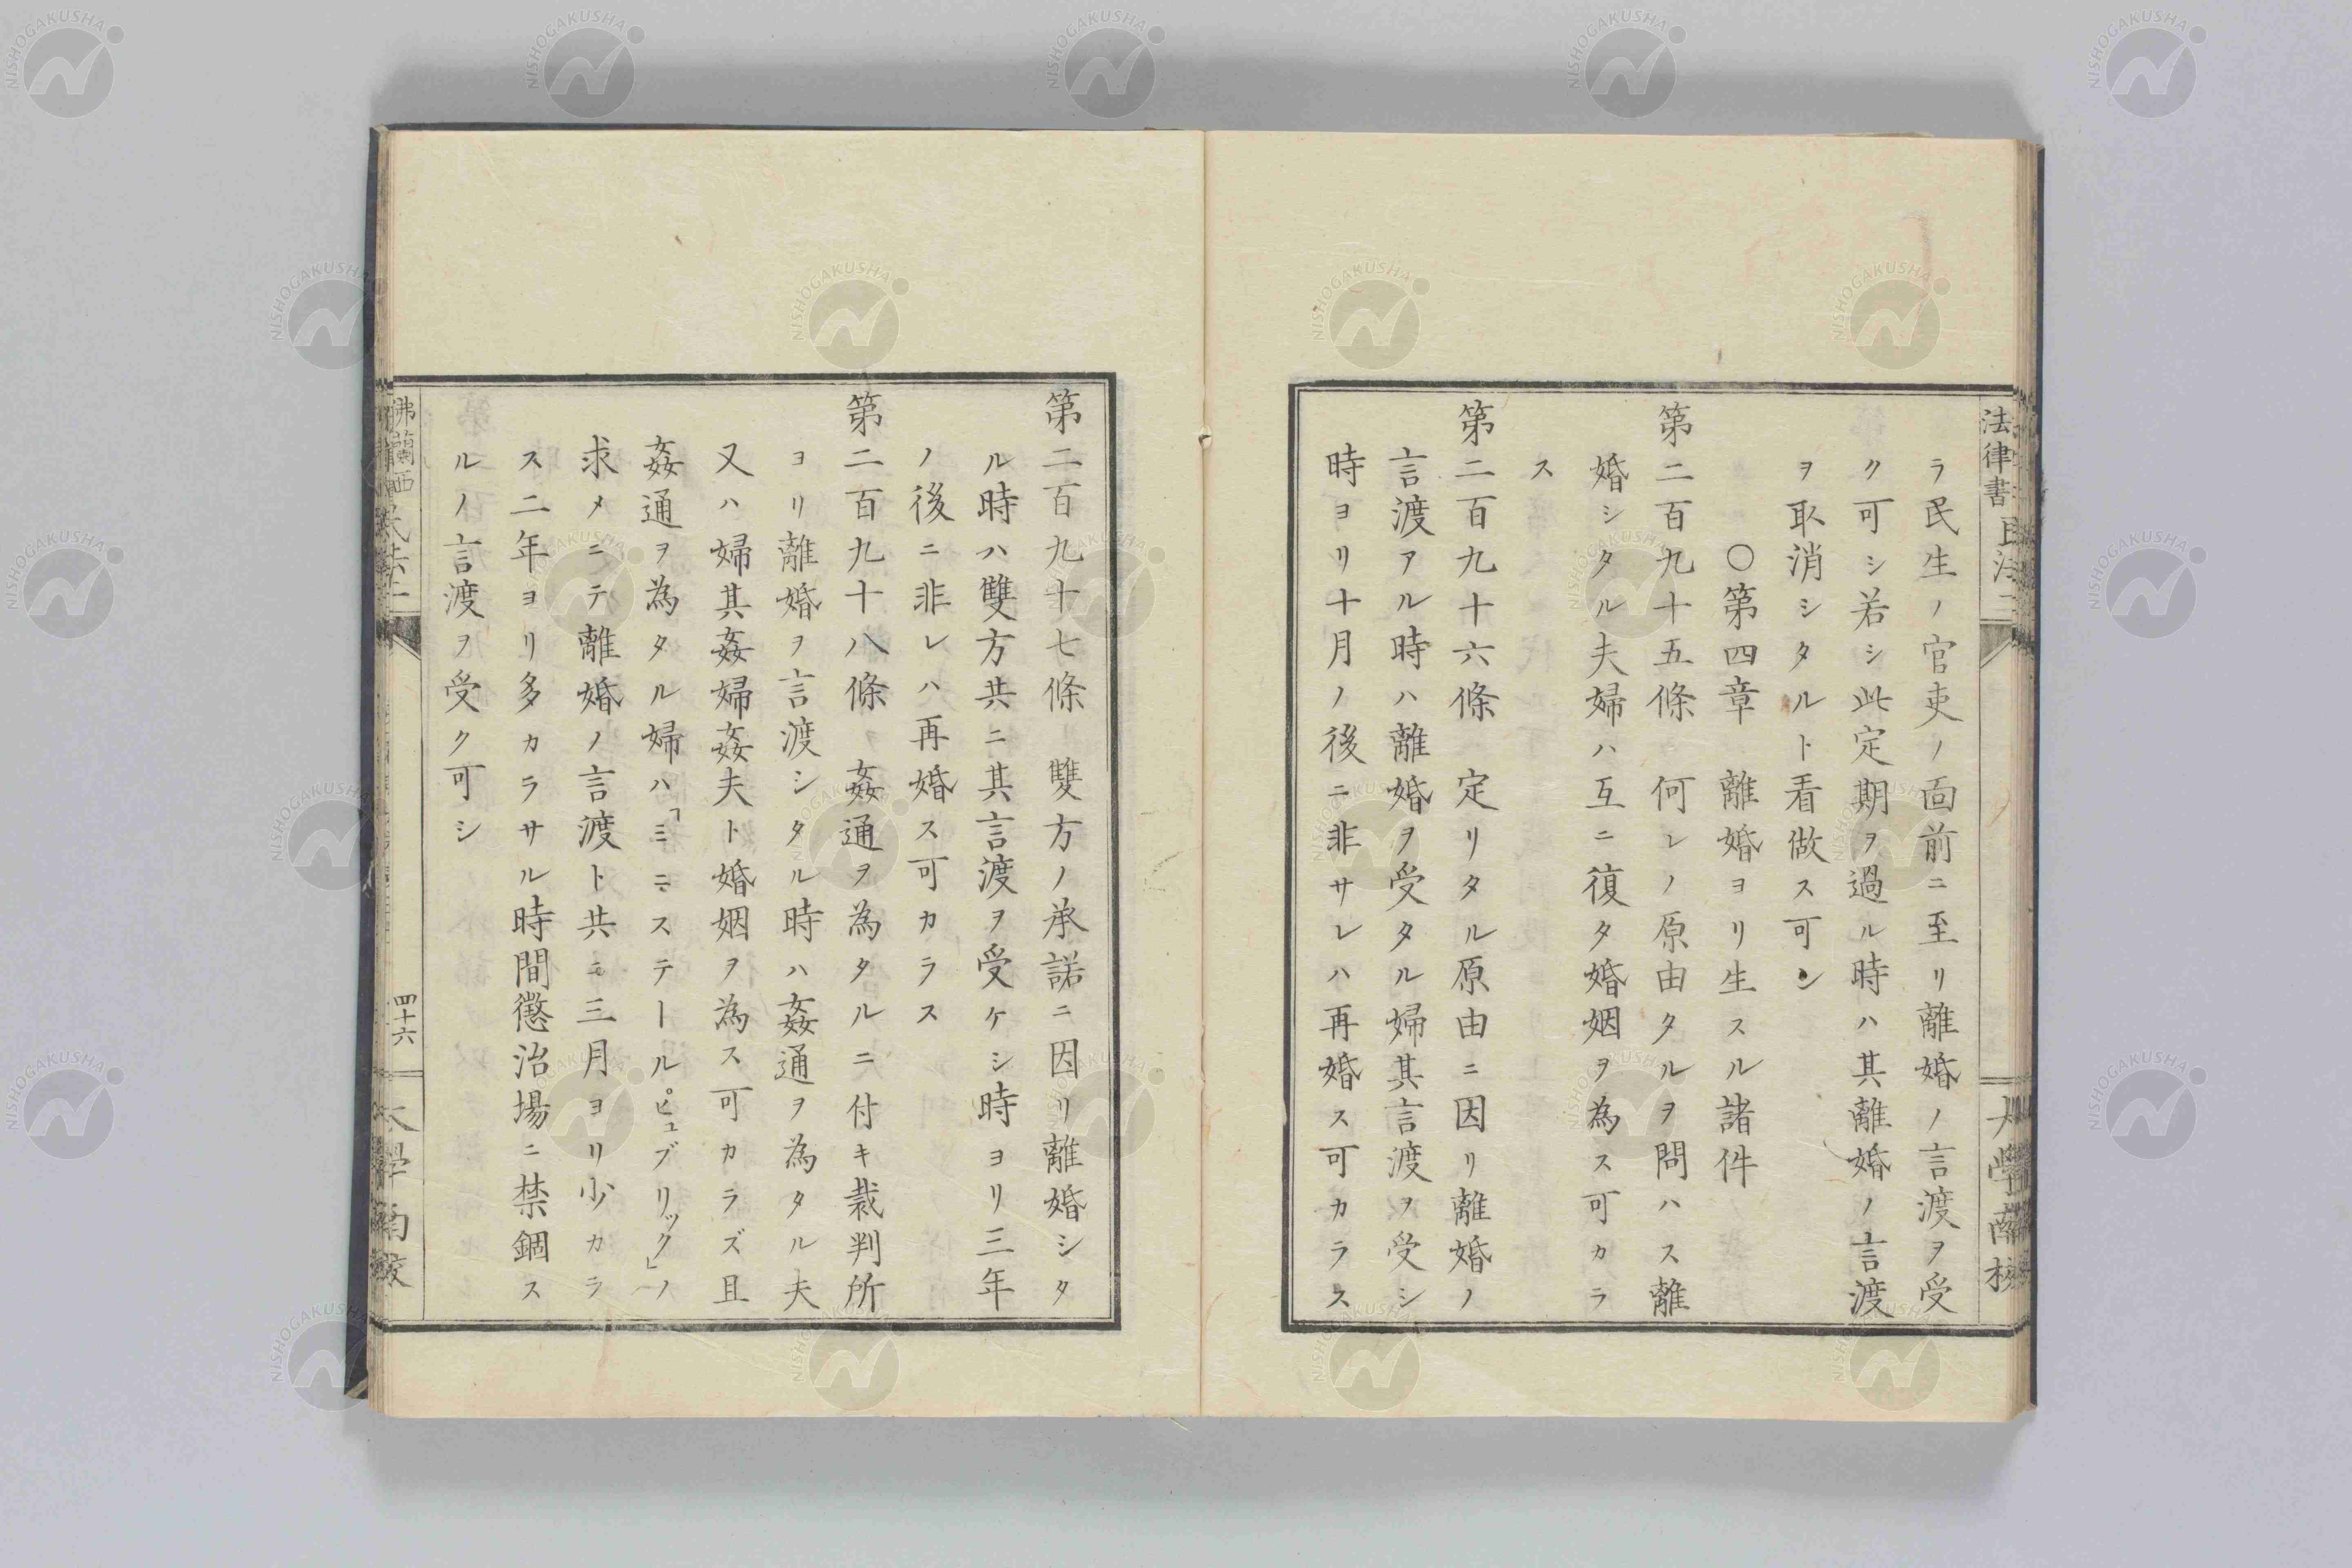 法律書 民法二
大學南校
ラ民生ノ官吏ノ面前ニ至リ離婚ノ言渡ヲ受
ク可シ若シ此定期ヲ過ル時ハ其離婚ノ言渡
ヲ取消シタルト看做ス可シ
〇第四章 離婚ヨリ生スル諸件
第二百九十五條 何レノ原由タルヲ問ハス離
婚シタル夫婦ハ互ニ復タ婚姻ヲ為ス可カラ
ス
第二百九十六條 定リタル原由ニ因リ離婚ノ
言渡アル時ハ離婚ヲ受タル婦其言渡ヲ受シ
時ヨリ十月ノ後ニ非サレハ再婚ス可カラス
第二百九十七條 雙方ノ承諾ニ因リ離婚シタ
ル時ハ雙方共ニ其言渡ヲ受ケシ時ヨリ三年
ノ後ニ非レハ再婚ス可カラス
第二百九十八條 姦通ヲ為タルニ付キ裁判所
ヨリ離婚ヲ言渡シタル時ハ姦通ヲ為タル夫
又ハ婦其姦婦姦夫ト婚姻ヲ為ス可カラズ且
姦通ヲ為タル婦ハ「ミニステールピュブリック」ノ
求メニテ離婚ノ言渡ト共ニ三月ヨリ少カラ
ス二年ヨリ多カラサル時間懲治場ニ禁錮ス
ルノ言渡ヲ受ク可シ
佛蘭西 民法二
四十六
大學南校
NISHOGAKUSHA